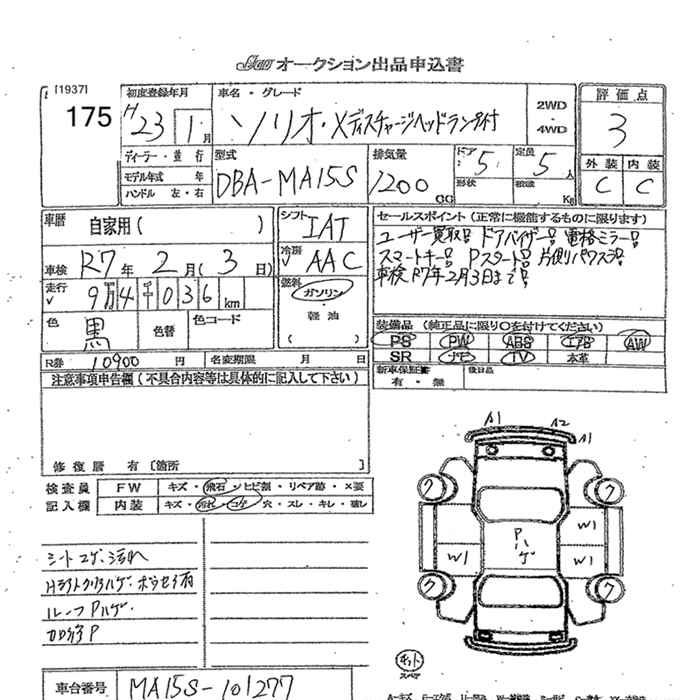 オークション出品申込書
[1937]
175
初度登録年月
H23年1月
車名・グレード
ソリオ・Xディスチャージヘッドランプ付
2WD
・
4WD
評価点
3
外装 内装
C C
ディーラー・並行
モデル年式 年
ハンドル 左・右
型式
DBA-MA15S
排気量
1200
CC
ドア
5
形状
定員
5人
積載
Kg
車歴
自家用( )
シフト
IAT
車検
R7年2月(3日)
冷房
AAC
走行
9万4千036km
燃料
ガソリン
・
軽油
( )
色
黒
色替
色コード
R券 10900円
名変期限 月 日
セールスポイント(正常に機能するものに限ります)
ユーザー買取! ドアバイザー! 電格ミラー!
スマートキー! Pスタート! 片側パワスラ!
車検R7年2月3日まで!
装備品(純正品に限り○を付けてください)
PS PW ABS エアB AW
SR ナビ TV 本革
新車保証書
有・無
後日品
注意事項申告欄(不具合内容等は具体的に記入して下さい)
修復歴 有〔箇所 〕
検査員
記入欄
FW キズ・飛石・ヒビ割・リペア跡・×要
内装 キズ・汚れ・コゲ・穴・スレ・キレ・破レ
シートコゲ、汚れ
Hライトクリハゲ、ホウセキ有
ルーフPハゲ
カロ浮P
車台番号
MA15S-101277
A1 A2
A1
ク ク
W1
Pハゲ
W1 W1
ク ク
キット
スペア